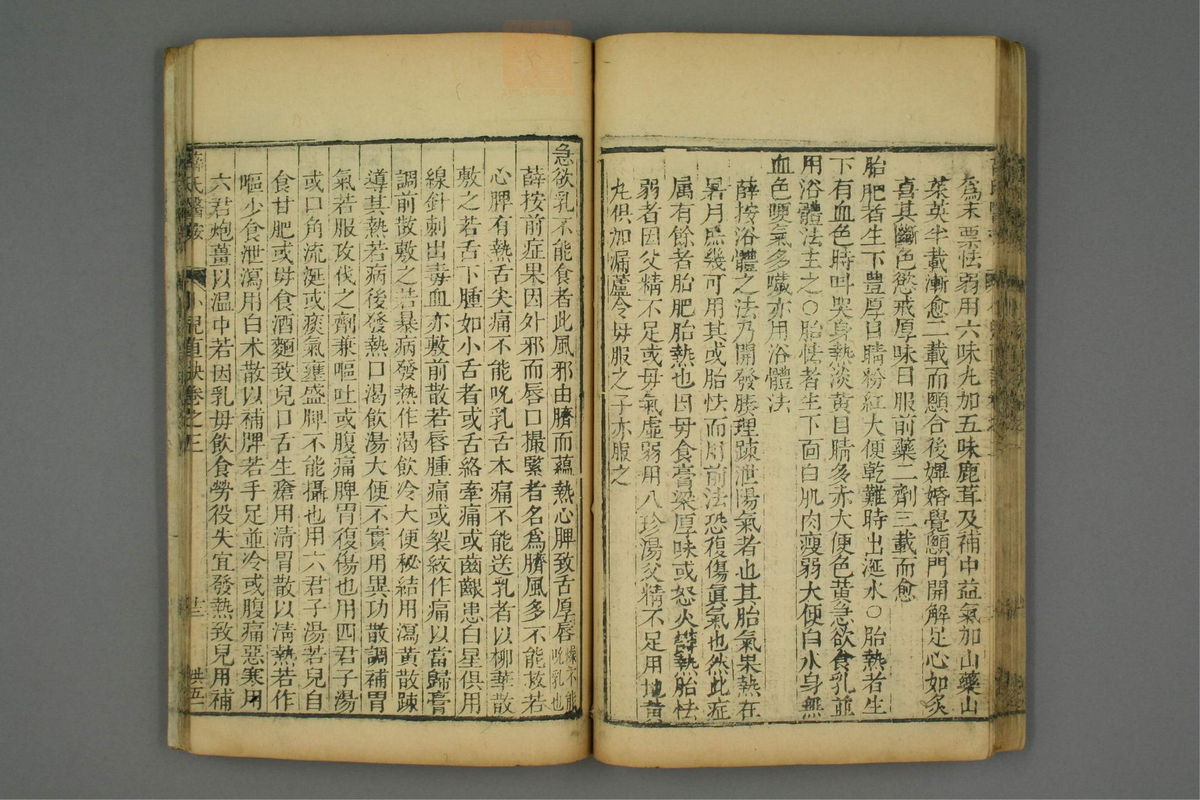 為末棗怯弱用六味丸加五味鹿茸及補中益氣加山藥山
茱萸半載漸愈二載而顖合後嬅婚覺顖門開解足心如炙
喜其斷色慾戒厚味日服前藥二劑三載而愈
胎肥者生下豐厚目睛粉紅大便乾難時出涎水○胎熱者生
下有血色時呌哭身熱淡黃目睛多赤大便色黃急欲食乳並
用浴體法主之○胎怯者生下面白肌肉瘦弱大便白水身無
血色哽氣多噦亦用浴體法
薛按浴體之法乃開發腠理踈泄陽氣者也其胎氣果熱在
暑月庶幾可用其或胎怯而用前法恐復傷眞氣也然此症
屬有餘者胎肥胎熱也因母食膏粱厚味或怒火等熱胎怯
弱者因父精不足或母氣虛弱用八珍湯父精不足用地黃
丸俱加漏蘆令母服之子亦服之
急欲乳不能食者此風邪由臍而蘊熱心脾致舌厚唇燥不能吮乳也
薛按前症果因外邪而唇口撮緊者名為臍風多不能救若
心脾有熱舌尖痛不能吮乳舌本痛不能送乳者以柳華散
敷之若舌下腫如小舌者或舌絡牽痛或齒齦患白星俱用
線針刺出毒血亦敷前散若唇腫痛或裂紋作痛以當歸膏
調前散敷之若暴病發熱作渴飲冷大便秘結用瀉黃散踈
導其熱若病後發熱口渴飲湯大便不實用異功散調補胃
氣若服攻伐之劑兼嘔吐或腹痛脾胃復傷也用四君子湯
或口角流涎或痰氣壅盛脾不能攝也用六君子湯若兒自
食甘肥或母食酒麵致兒口舌生瘡用清胃散以清熱若作
嘔少食泄瀉用白术散以補脾若手足並冷或腹痛惡寒用
六君炮薑以温中若因乳母飲食勞役失宜發熱致兒用補
薛氏醫按 小兒直訣卷之三 廿二 洪五一